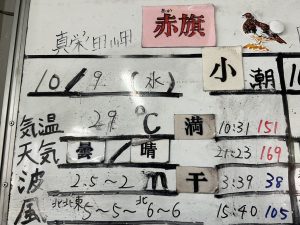 真栄田岬 赤旗
10/9(水) 小潮
気温 29℃ 満 10:31 151
天気 曇/晴 21:23 169
波 2.5~2m 干 3:39 38
風 北北東5~5~北6~6 15:40 105